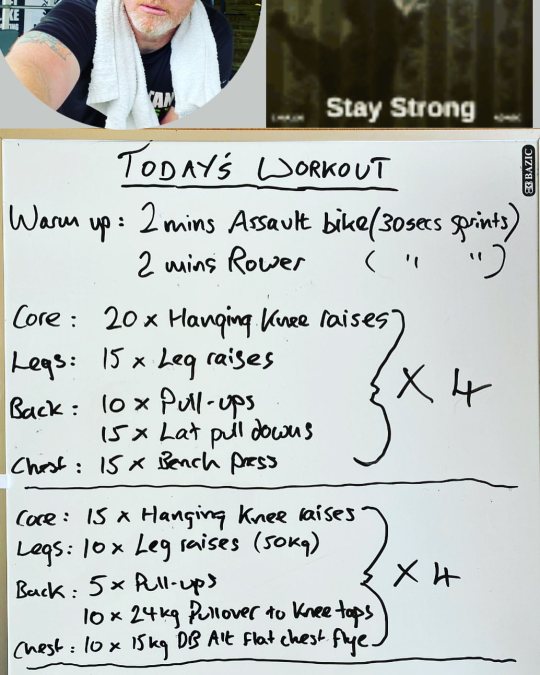 Stay Strong
TODAY'S WORKOUT
BAZIC
Warm up: 2 mins Assault bike (30secs sprints)
2 mins Rower ( " " )
Core: 20 x Hanging Knee raises
Legs: 15 x Leg raises
Back: 10 x Pull-ups
15 x Lat pull downs
Chest: 15 x Bench press
X 4
Core: 15 x Hanging Knee raises
Legs: 10 x Leg raises (50kg)
Back: 5 x Pull-ups
10 x 24kg Pullover to Knee tops
Chest: 10 x 15kg DB Alt flat chest flye
X 4